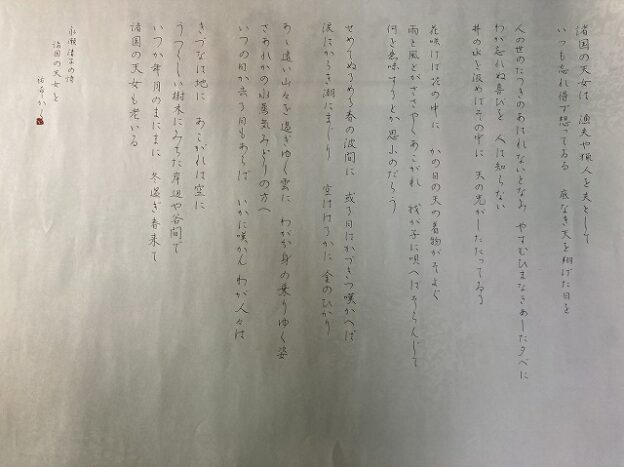 諸国の天女は 漁夫や猟人を夫として
いつも忘れ得ず想つてゐる 底なき天を翔けた日を
人の世のたつきのあはれないとなみ やすむひまなきあした夕べに
わが忘れぬ喜びを 人は知らない
井の水を汲めばその中に 天の光がしたたつてゐる
花咲けば花の中に かの日の天の着物がそよぐ
雨と風とがささやくあこがれ 我が子に唄へばそらんじて
何を意味するとか思ふのだらう
せめてぬるめる春の波間に 或る日はかづきつ嘆かへば
涙はからき潮にまじり 空ははるかに金のひかり
あゝ遠い山々を過ぎゆく雲に わが身の乗りゆく姿
さあれかの水蒸気みどりの方へ
いつの日か去る日もあらば いかに嘆かん わが人々は
きづなは地に あこがれは空に
うつくしい樹木にみちた岸辺や谷間で
いつか年月のまにまに 冬過ぎ春来て
諸国の天女も老いる
永瀬清子の詩
諸国の天女を
かく